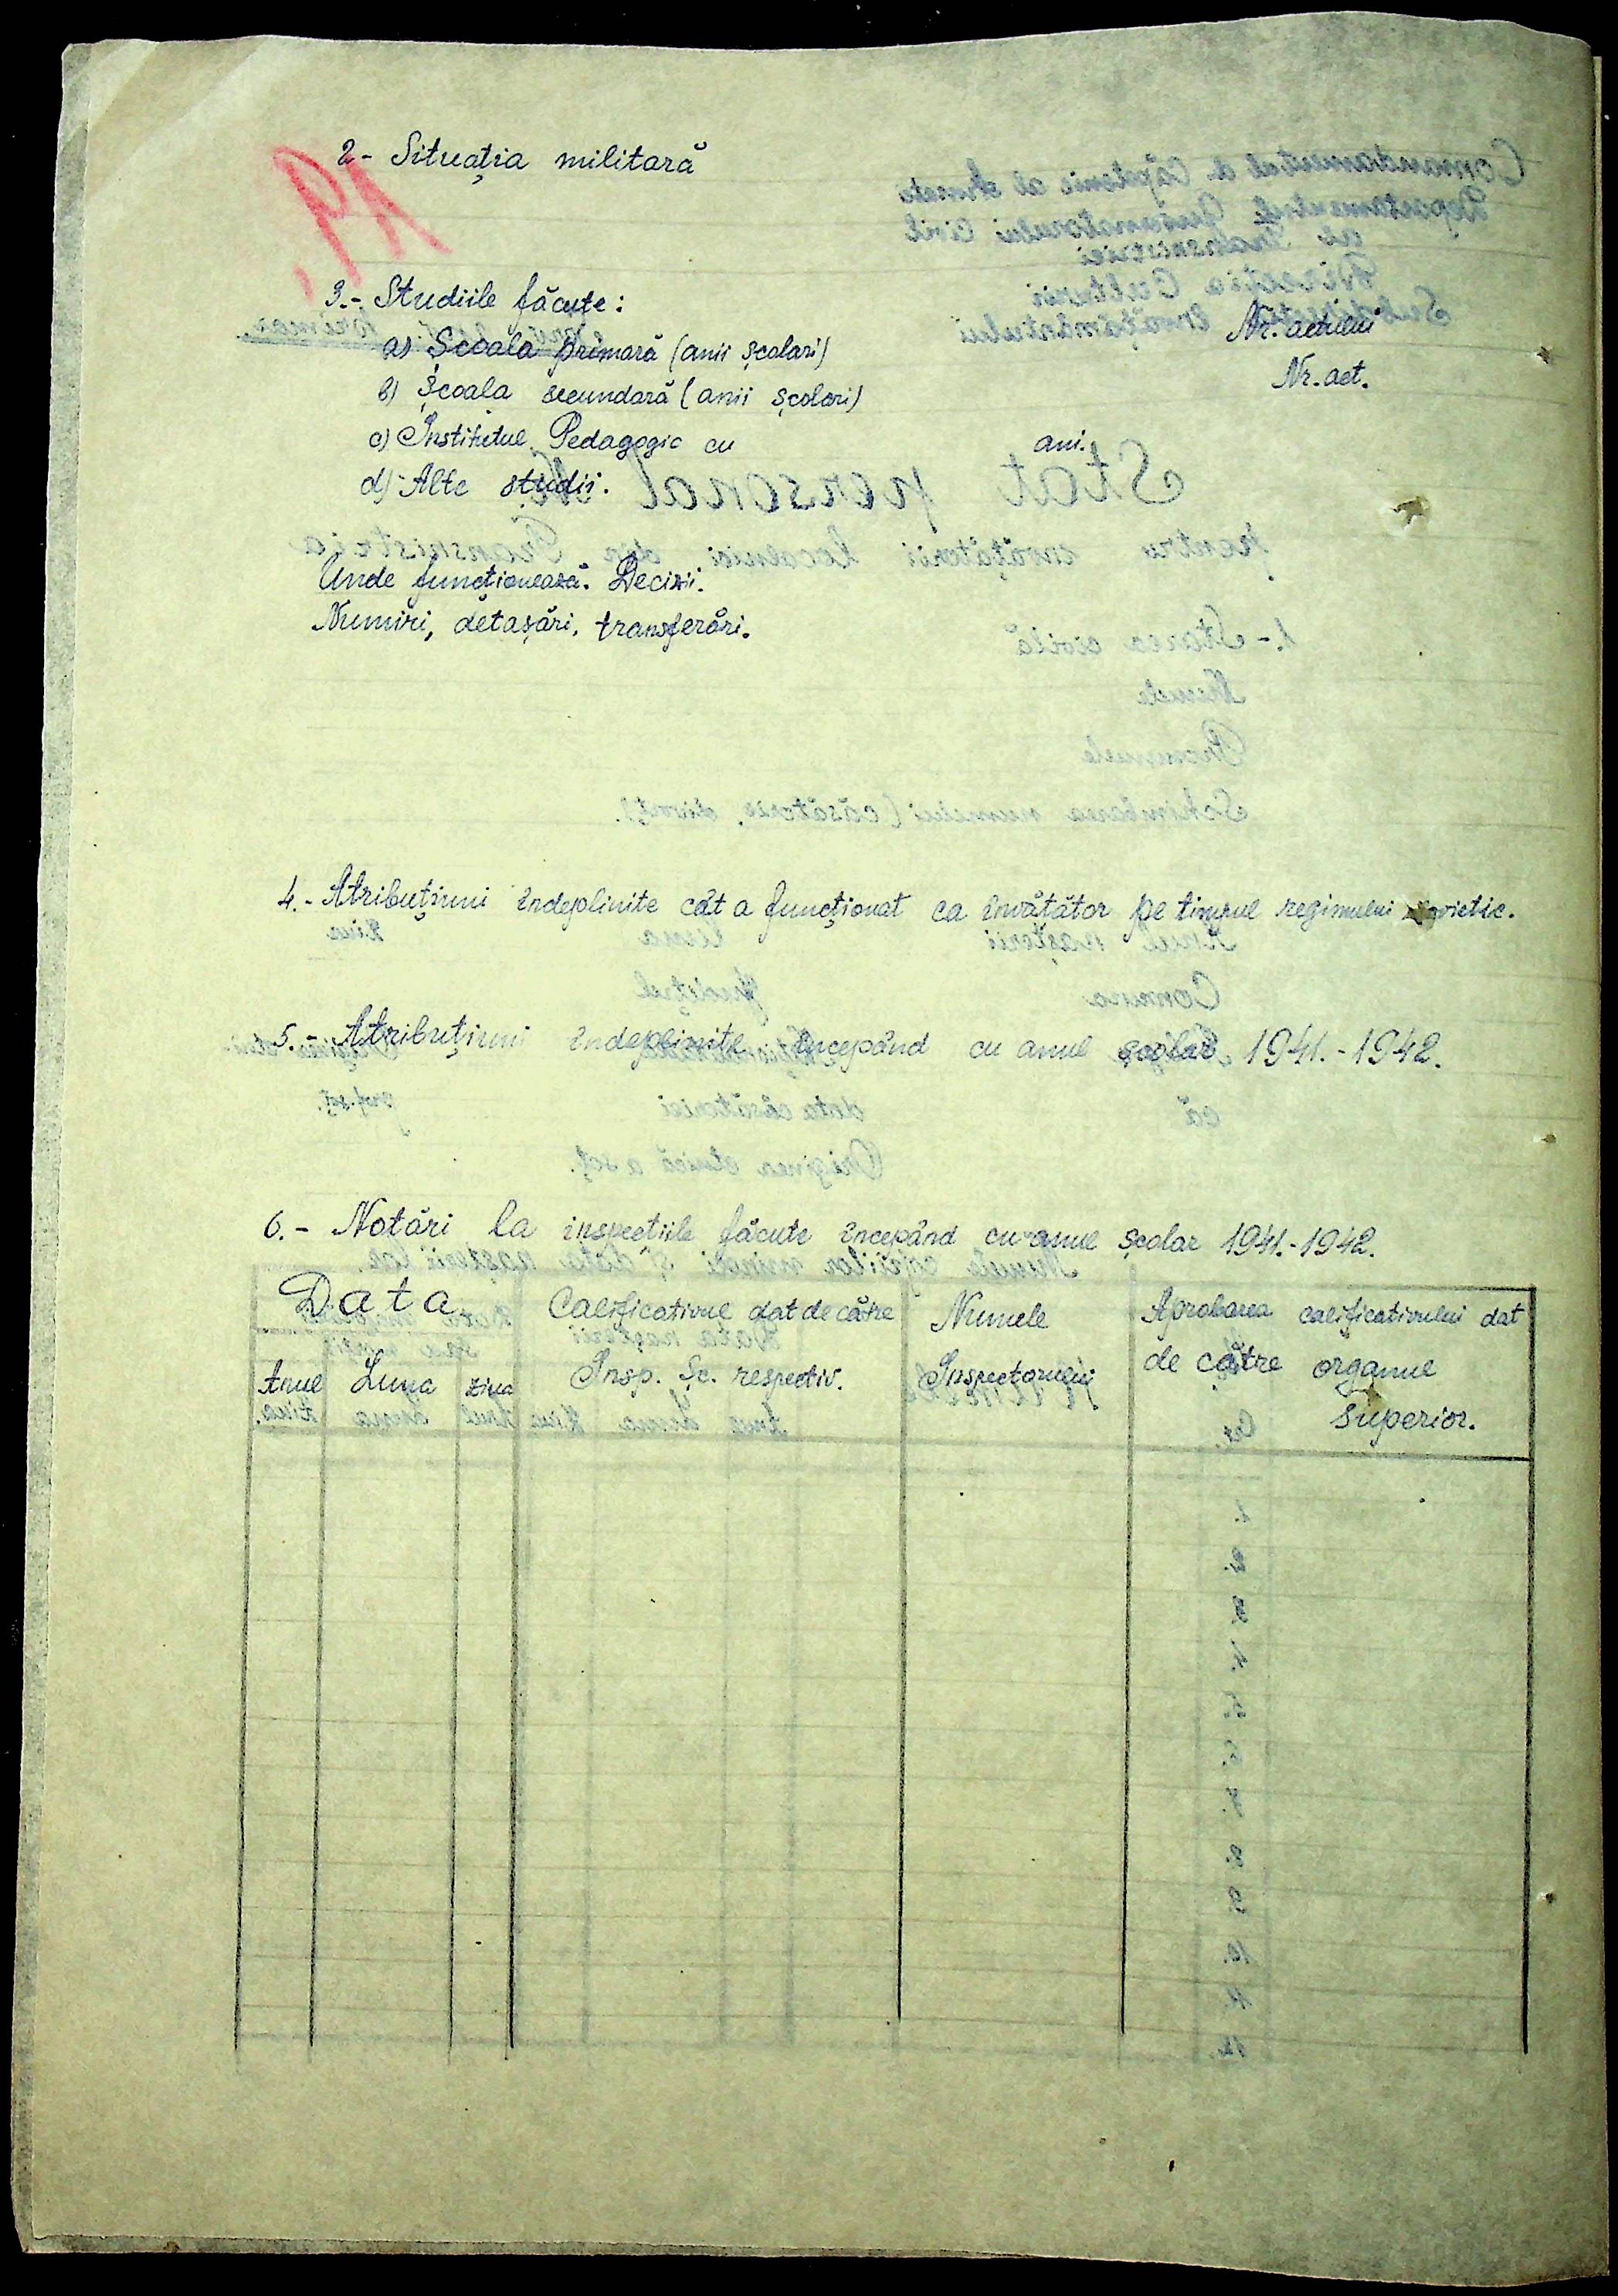 2- Situația militară
3.- Studiile făcute:
a) Școala primară (anii școlari) Nr. actului
b) Școala secundară (anii școlari) Nr. act.
c) Institutul Pedagogic cu ani.
d) Alte studii.
Unde funcționează. Decizii.
Numiri, detașări, transferări.
4.- Atribuțiuni îndeplinite cât a funcționat ca învățător pe timpul regimului sovietic.
5.- Atribuțiuni îndeplinite începând cu anul școlar 1941.-1942.
6.- Notări la inspecțiile făcute începând cu anul școlar 1941.-1942.
Data
Anul Luna ziua
Calificativul dat de către
Insp. Șc. respectiv.
Numele
Inspectorului
Aprobarea calificativului dat
de către organul
superior.